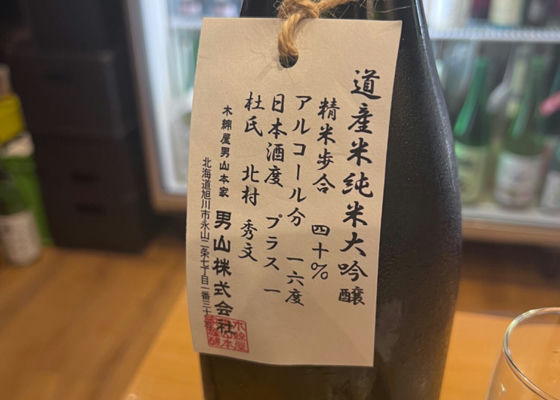 道産米純米大吟醸
精米歩合 四十%
アルコール分 一六度
日本酒度 プラス一
杜氏 北村 秀文
木綿屋男山本家 男山株式会社
北海道旭川市永山二条七丁目一番三十